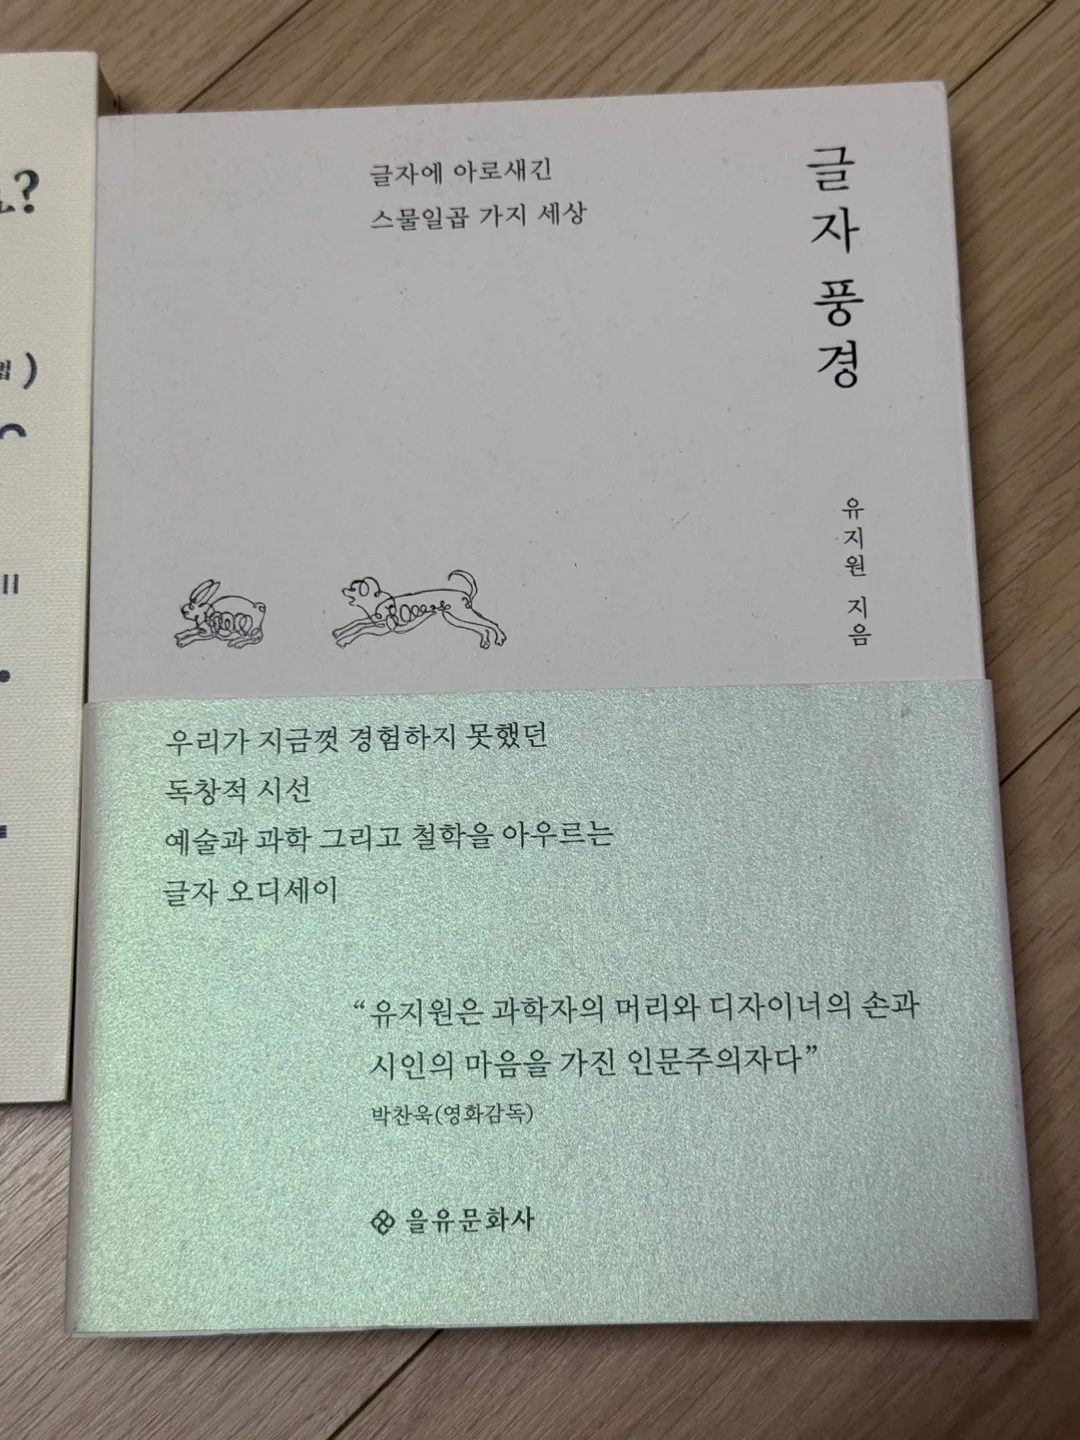 글자에 아로새긴
스물일곱 가지 세상
글자풍경
유지원 지음
우리가 지금껏 경험하지 못했던
독창적 시선
예술과 과학 그리고 철학을 아우르는
글자 오디세이
“유지원은 과학자의 머리와 디자이너의 손과
시인의 마음을 가진 인문주의자다”
박찬욱(영화감독)
을유문화사